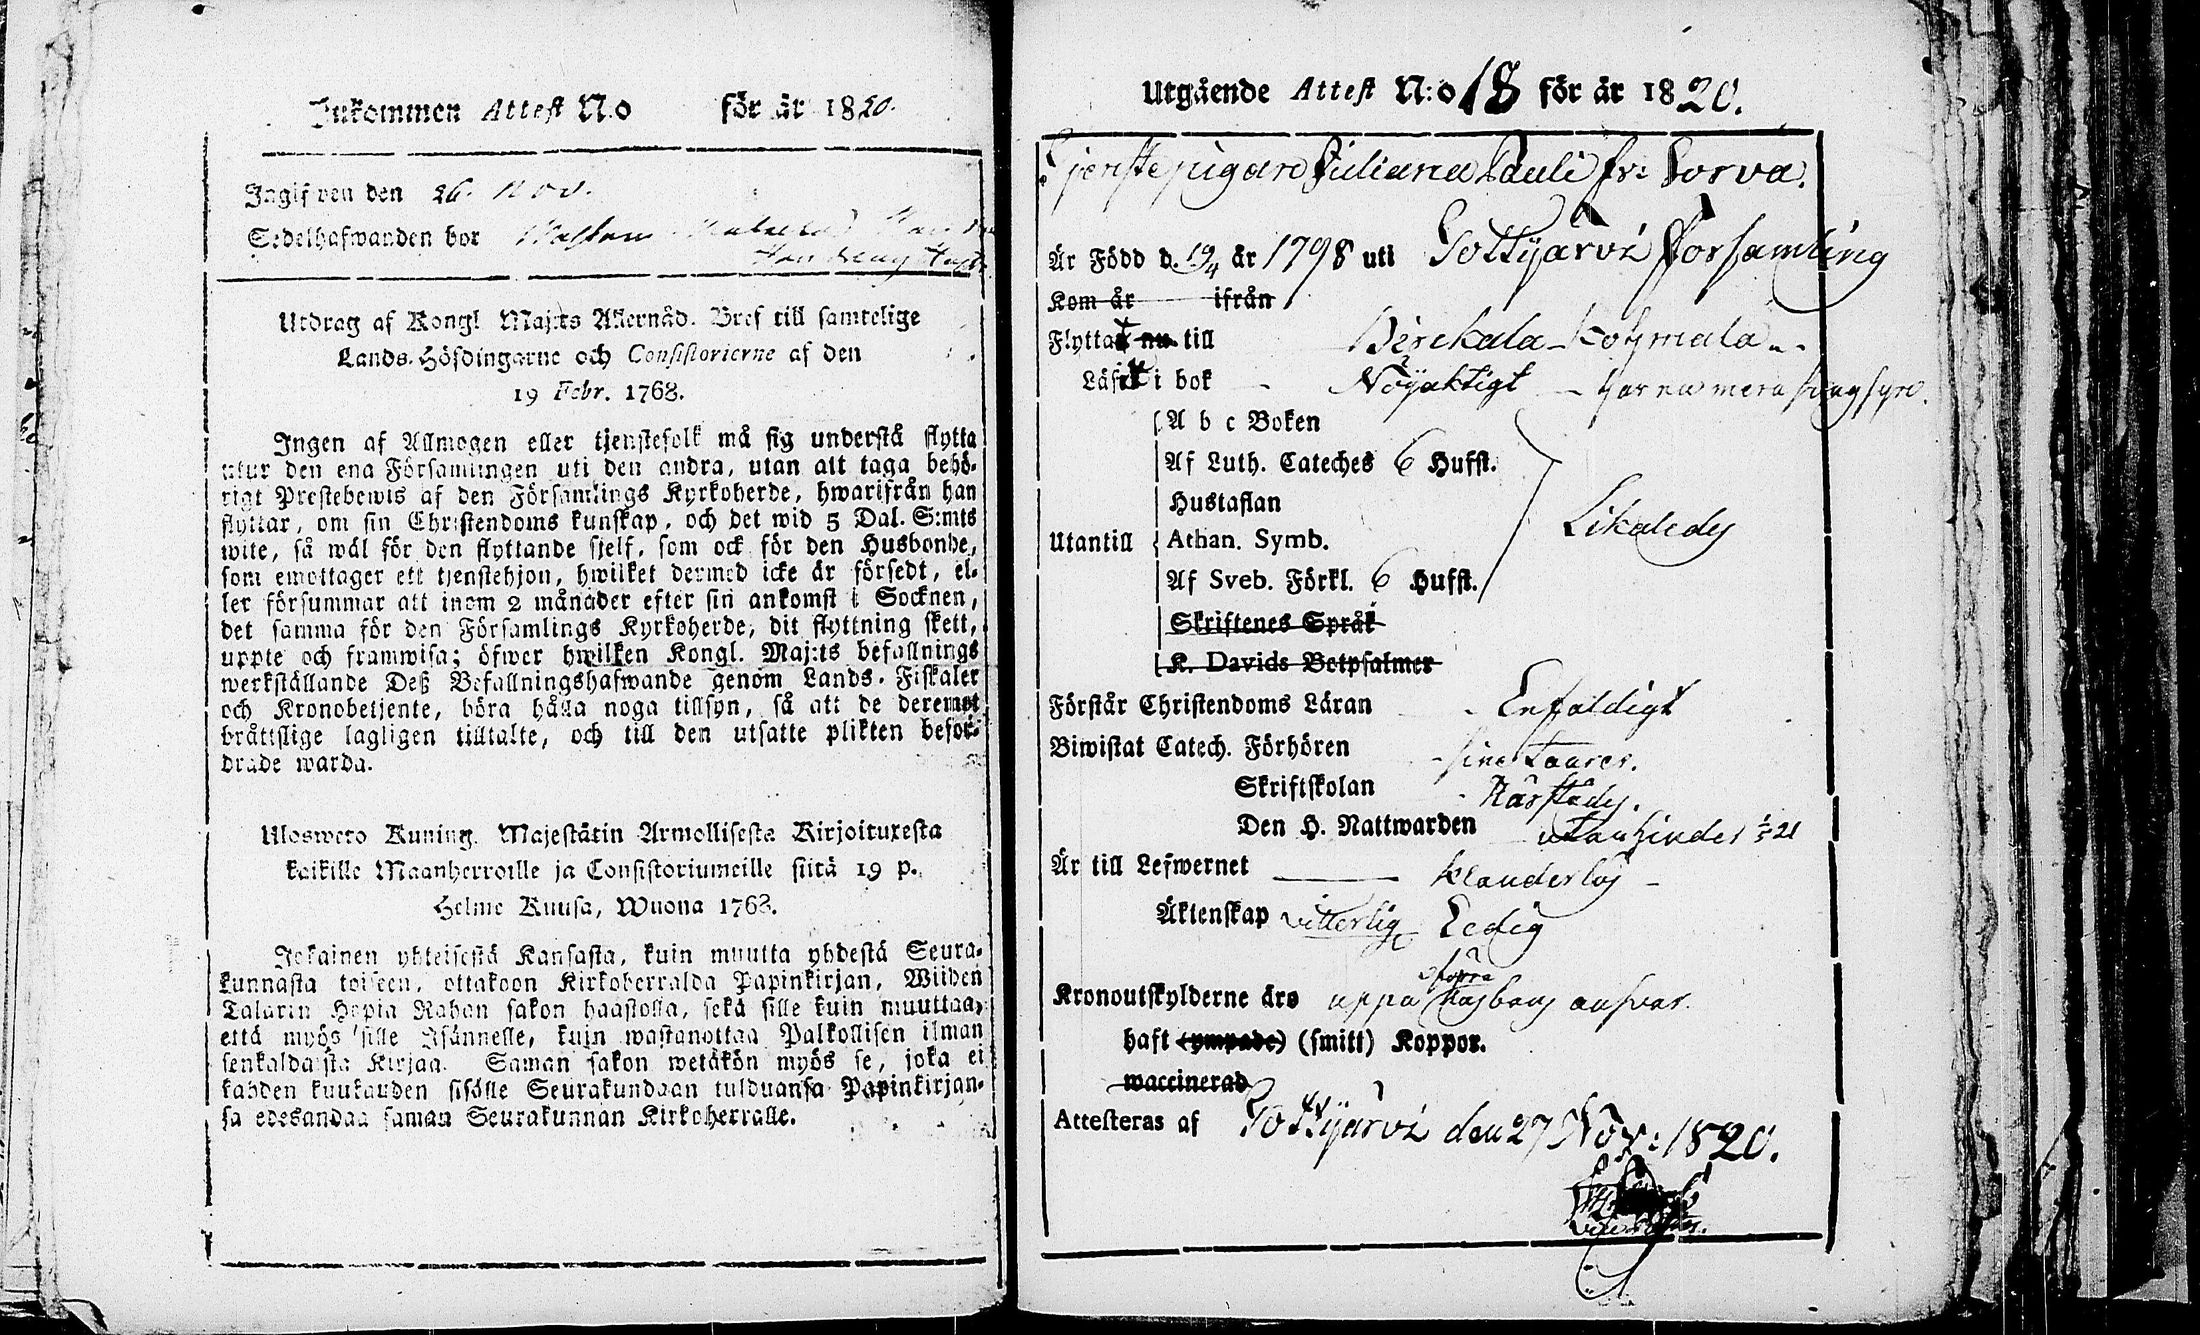 Inkommen Attest N:o för år 1820.
Ingifven den 26. Nov.
Sedelhafwanden bor
Utdrag af Kongl. Maj:ts Allernåd. Bref till samtelige
Lands-Höfdingarne och Consistorierne af den
19 Febr. 1768.
Ingen af Allmogen eller tjenstefolk må sig understå flytta
utur den ena Församlingen uti den andra, utan att taga behö-
rigt Prestebewis af den Församlings Kyrkoherde, hwarifrån han
flyttar, om sin Christendoms kunskap, och det wid 5 Dal. S:mts
wite, så wäl för den flyttande sjelf, som ock för den Husbonde,
som emottager ett tjenstehjon, hwilket dermed icke är försedt, el-
ler försummar att inom 2 månader efter sin ankomst i Socknen,
det samma för den Församlings Kyrkoherde, dit flyttning skett,
uppte och framwisa; öfwer hwilken Kongl. Maj:ts befallnings
werkställande Deß Befallningshafwande genom Lands-Fiskaler
och Kronobetjente, böra hålla noga tillsyn, så att de deremot
bråttslige lagligen tilltalte, och till den utsatte plikten befor-
drade warda.
Uloswero Kuning. Majestätin Armollisesta Kirjoituxesta
kaikille Maanherroille ja Consistoriumeille siitä 19 p.
Helme Kuusa, Wuona 1768.
Jokainen yhteisestä Kansasta, kuin muutta yhdestä Seura-
kunnasta toiseen, ottakoon Kirkoherralda Papinkirjan, Wiiden
Talarin Hopia Rahan sakon haastolla, sekä sille kuin muuttaa,
että myös sille Isännelle, kuin wastanottaa Palkollisen ilman
senkaldaista Kirjaa. Saman sakon wetäkön myös se, joka ei
kahden kuukauden sisälle Seurakundaan tulduansa Papinkirjan-
sa edesandaa saman Seurakunnan Kirkoherralle.
Utgående Attest N:o 18 för år 1820.
Tjenstepigan Juliana Pauli fr: Sorva.
Är Född d. 19/4 år 1798 uti Tottijärvi Församling
Kom år ifrån
Flyttat nu till Birckala Kotzmala
Läser i bok Nöyaktigt – har nu mera svag syn.
A b c Boken
Af Luth. Cateches 6 Hufst.
Hustaflan
Utantill Athan. Symb. Likaledes
Af Sveb. Förkl. 6 Hufst.
Skriftenes Språk
K. Davids Botpsalmer
Förstår Christendoms Läran Enfaldigt
Biwistat Catech. Förhören
Skriftskolan
Den H. Nattwarden utan hinder
Är till Lefwernet klanderlös
Äktenskap vitterlig Ledig
Kronoutskylderne äro uppå Husbons ansvar.
haft (ympade) (smitt) Koppor.
waccinerad
Attesteras af Tottijärvi den 27 Nov: 1820.